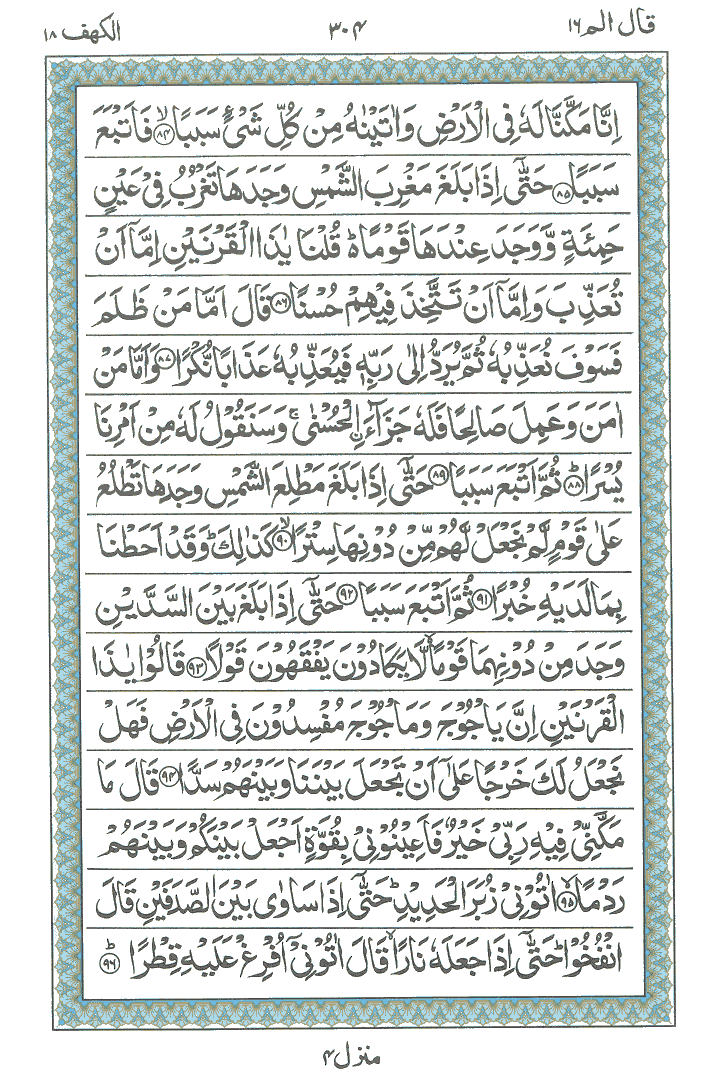 قال الم ١٦ ٣٠٤ الكهف ١٨
اِنَّا مَكَّنَّا لَهٗ فِی الْاَرْضِ وَ اٰتَیْنٰهُ مِنْ كُلِّ شَیْءٍ سَبَبًاۙ ﴿۸۴﴾ فَاَتْبَعَ
سَبَبًا ﴿۸۵﴾ حَتّٰۤی اِذَا بَلَغَ مَغْرِبَ الشَّمْسِ وَجَدَهَا تَغْرُبُ فِیْ عَیْنٍ
حَمِئَةٍ وَّ وَجَدَ عِنْدَهَا قَوْمًا۬ؕ قُلْنَا یٰذَا الْقَرْنَیْنِ اِمَّاۤ اَنْ
تُعَذِّبَ وَ اِمَّاۤ اَنْ تَتَّخِذَ فِیْهِمْ حُسْنًا ﴿۸۶﴾ قَالَ اَمَّا مَنْ ظَلَمَ
فَسَوْفَ نُعَذِّبُهٗ ثُمَّ یُرَدُّ اِلٰی رَبِّهٖ فَیُعَذِّبُهٗ عَذَابًا نُّكْرًا ﴿۸۷﴾ وَ اَمَّا مَنْ
اٰمَنَ وَ عَمِلَ صَالِحًا فَلَهٗ جَزَآءَ اۨلْحُسْنٰی ۚ وَ سَنَقُوْلُ لَهٗ مِنْ اَمْرِنَا
یُسْرًاؕ ﴿۸۸﴾ ثُمَّ اَتْبَعَ سَبَبًا ﴿۸۹﴾ حَتّٰۤی اِذَا بَلَغَ مَطْلِعَ الشَّمْسِ وَجَدَهَا تَطْلُعُ
عَلٰی قَوْمٍ لَّمْ نَجْعَلْ لَّهُمْ مِّنْ دُوْنِهَا سِتْرًاۙ ﴿۹۰﴾ كَذٰلِكَ ؕ وَ قَدْ اَحَطْنَا
بِمَا لَدَیْهِ خُبْرًا ﴿۹۱﴾ ثُمَّ اَتْبَعَ سَبَبًا ﴿۹۲﴾ حَتّٰۤی اِذَا بَلَغَ بَیْنَ السَّدَّیْنِ
وَجَدَ مِنْ دُوْنِهِمَا قَوْمًا ۙ لَّا یَكَادُوْنَ یَفْقَهُوْنَ قَوْلًا ﴿۹۳﴾ قَالُوْا یٰذَا
الْقَرْنَیْنِ اِنَّ یَاْجُوْجَ وَ مَاْجُوْجَ مُفْسِدُوْنَ فِی الْاَرْضِ فَهَلْ
نَجْعَلُ لَكَ خَرْجًا عَلٰۤی اَنْ تَجْعَلَ بَیْنَنَا وَ بَیْنَهُمْ سَدًّا ﴿۹۴﴾ قَالَ مَا
مَكَّنِّیْ فِیْهِ رَبِّیْ خَیْرٌ فَاَعِیْنُوْنِیْ بِقُوَّةٍ اَجْعَلْ بَیْنَكُمْ وَ بَیْنَهُمْ
رَدْمًاۙ ﴿۹۵﴾ اٰتُوْنِیْ زُبَرَ الْحَدِیْدِ ؕ حَتّٰۤی اِذَا سَاوٰی بَیْنَ الصَّدَفَیْنِ قَالَ
انْفُخُوْا ؕ حَتّٰۤی اِذَا جَعَلَهٗ نَارًا ۙ قَالَ اٰتُوْنِیْۤ اُفْرِغْ عَلَیْهِ قِطْرًاؕ ﴿۹۶﴾
منزل ٤